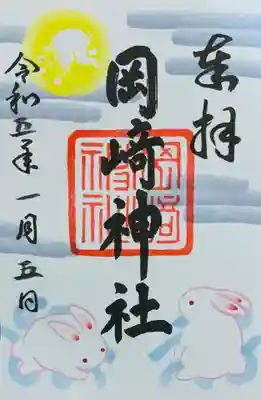 奉拝
岡﨑神社
岡﨑神社
令和五年 一月 五日